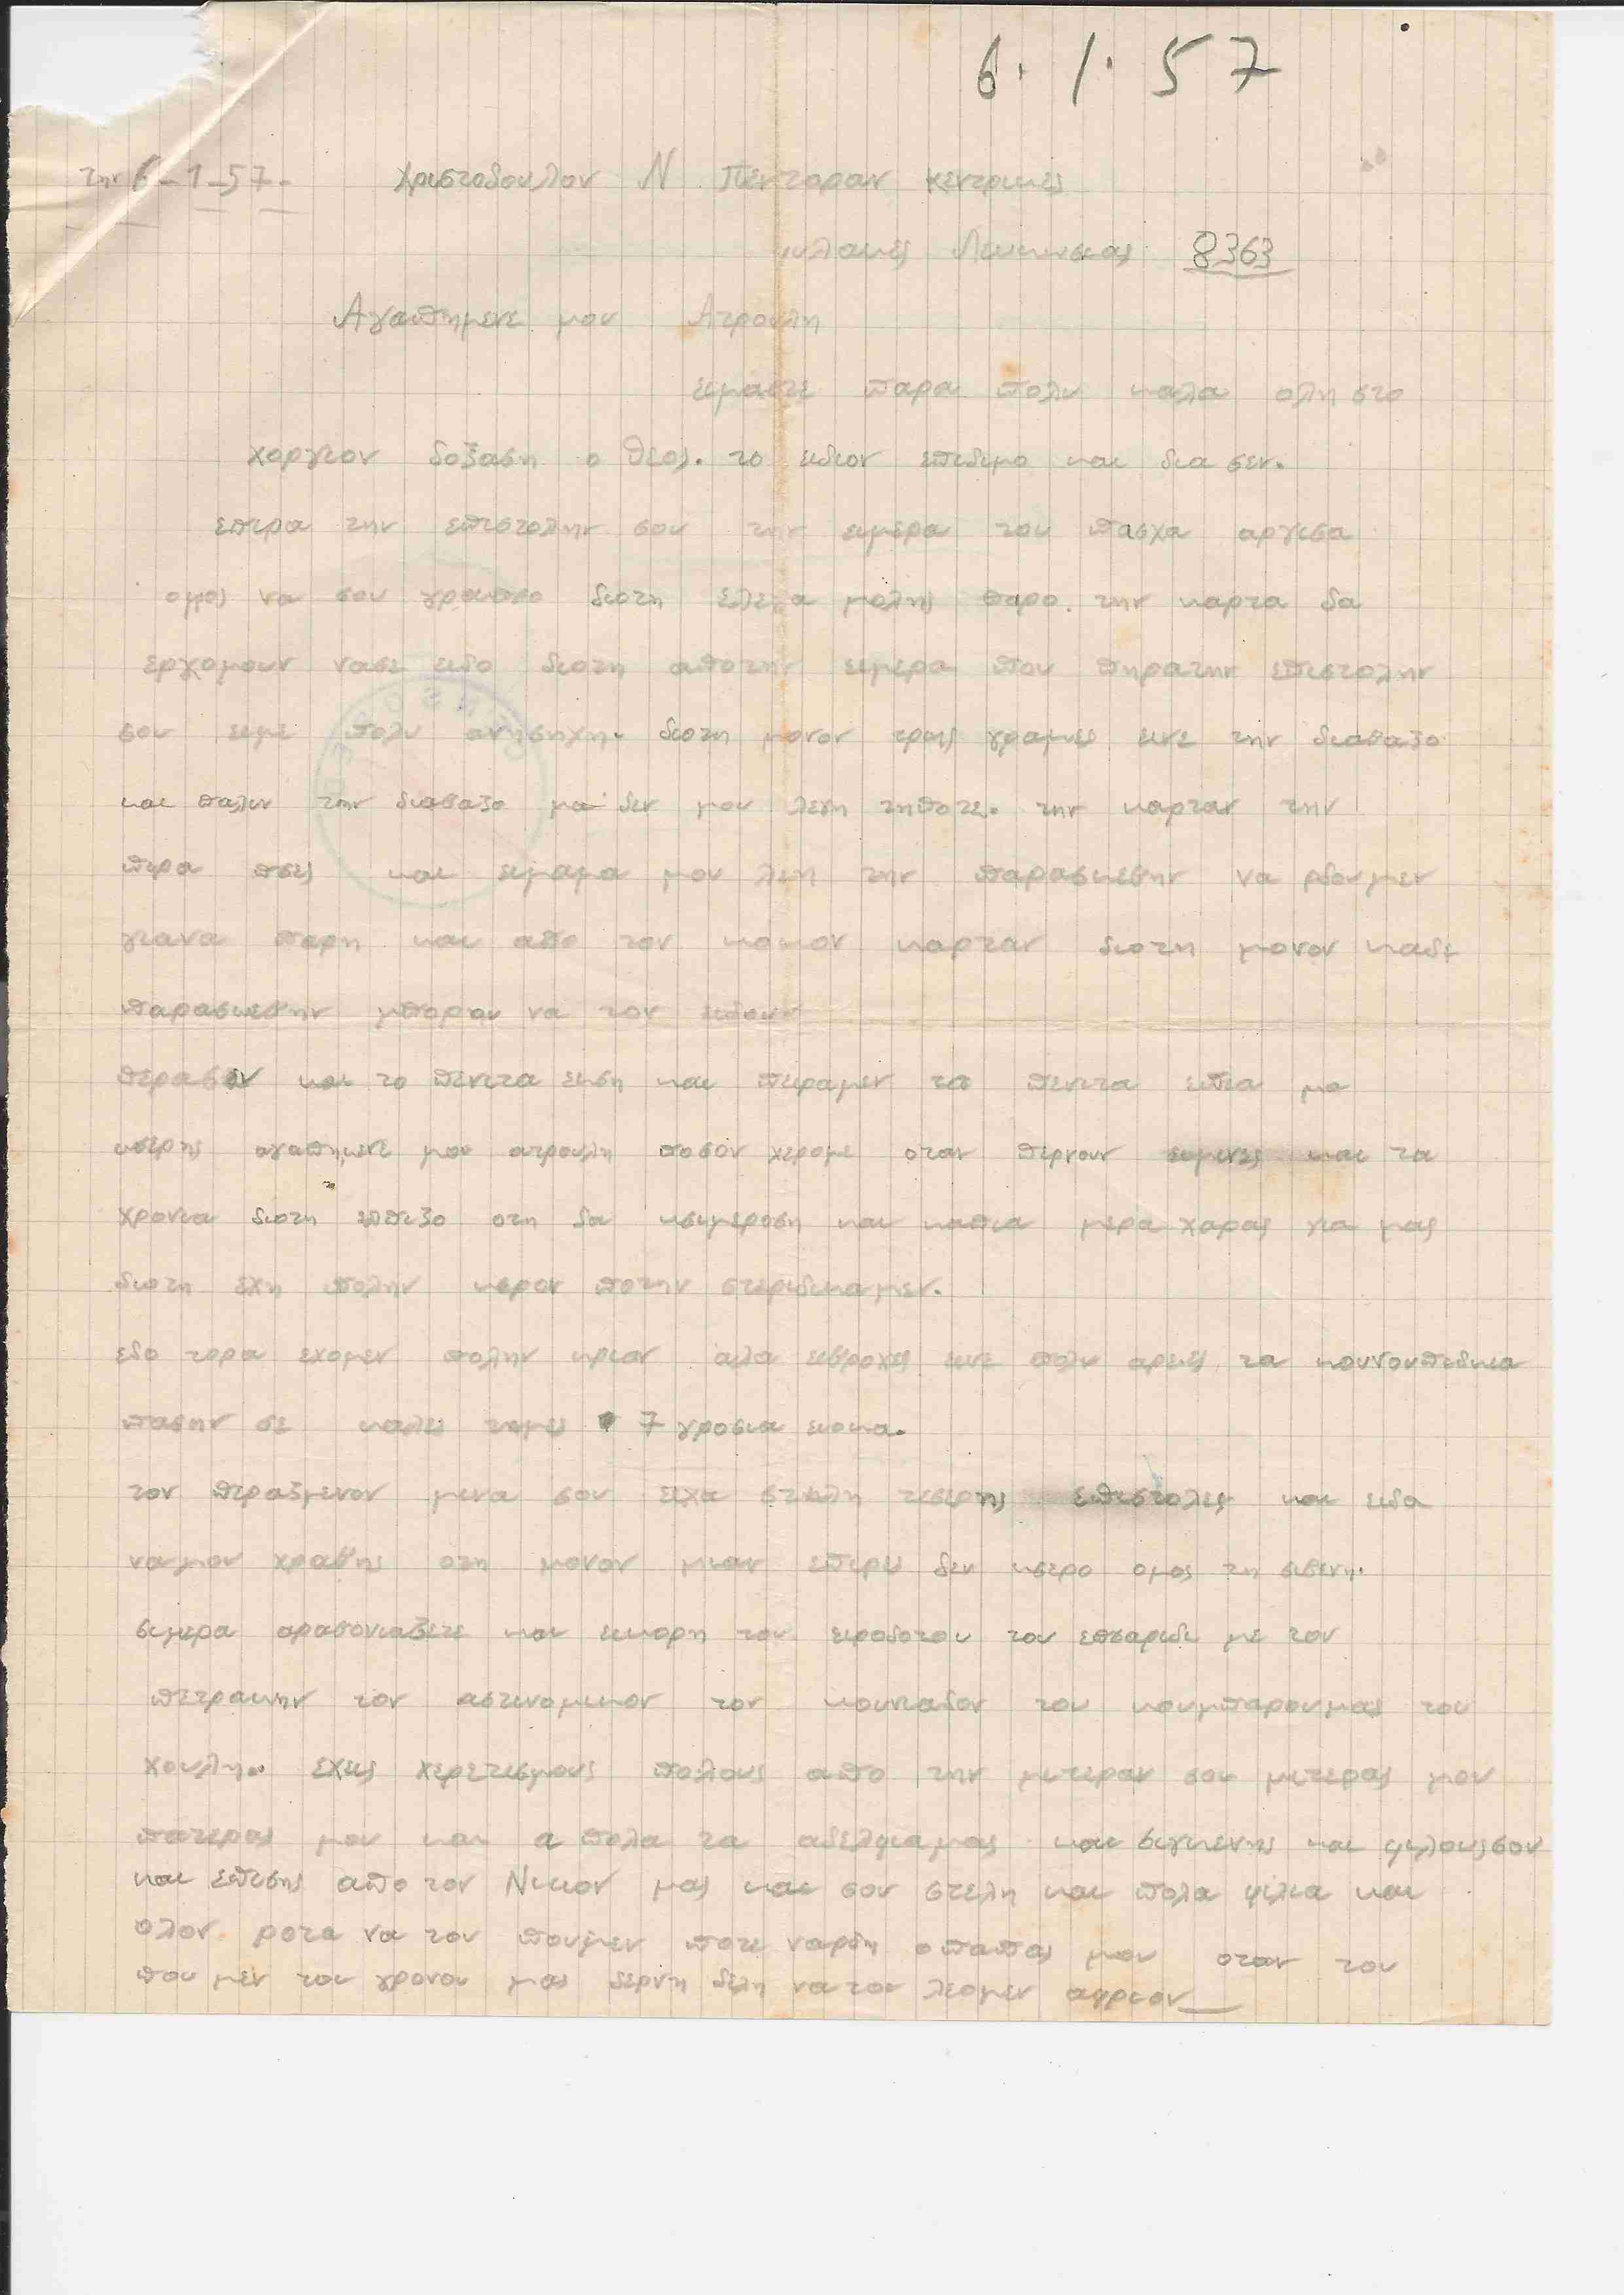 6. 1. 57
την 6-1-57- Χριστοδουλον Ν. Πενταραν κεντρικες
φυλακες Λευκωσιας 8363
Αγαπημενε μου Ατρουλη
ειμαστε παρα πολυ καλα ολη στο
χοργιον δοξαση ο θεος. το ιδιον επιθιμο και δια σεν.
επιρα την επιστολην σου την ειμερα του πασχα αργισα
ομος να σου γραπσο διοτη ελεγα μολης παρο. την καρτα θα
ερχομουν νασε ειδο διοτη αποτην ειμερα που πηρατην επιστολην
σου ειμε πολυ ανησηχη. διοτη μονον τρης γραμες εινε την διαβαζο
και παλιν την διαβαζο μα δεν μου λεγη τηποτε. την καρταν την
πιρα πσες και ειμαμα μου λεη την παρασκεβην να ρθουμεν
γιανα παρη και απο τον κοκον καρταν διοτη μονον καθε
παρασκεβην μπορουν να τον ειδουν
περασεν και το πενιτα εκση και πιραμεν τα πενιτα επτα μα
κσερης αγαπημενε μου ατρουλη ποσον χερομε οταν περνουν ειμινες και τα
χρονια διοτη επιζο οτη θα κσιμεροση και καπια μερα χαρας για μας
διοτη εχη πολην κερον ποτην στεριθικαμεν.
εδο τορα εχομεν πολην κριον αλα ειβροχες εινε πολυ αρκες τα κουνουπιδκια
πασην σε καλες τιμες 7 γροσια ειοκα.
τον περαζμενον μινα σου ειχα στιλη τεσερης επιστολες και ειδα
ναμου χραβης οτη μονον μιαν επιρες δεν κσερο ομος τη σιβενη.
σιμερα αραβονιαζετε και εικορη του ειροδοτου του επσαριδι με τον
πετρακην τον αστινομικον τον κουνιαδον του κουμπαρουμας του
χουλη.. εχεις χερετισμους πολους απο την μιτεραν σου μιτερας μου
πατερας μου και α πολα τα αδελφιαμας και σιγκενης και φιλουςσου
και επισης απο τον Νικον μας και σου στελη και πολα φιλια και
ολον ροτα να του πουμεν ποτε ναρθη οπαπας μου οταν του
που μεν του χρονου μας δερνη θελη να του λεομεν αφριον